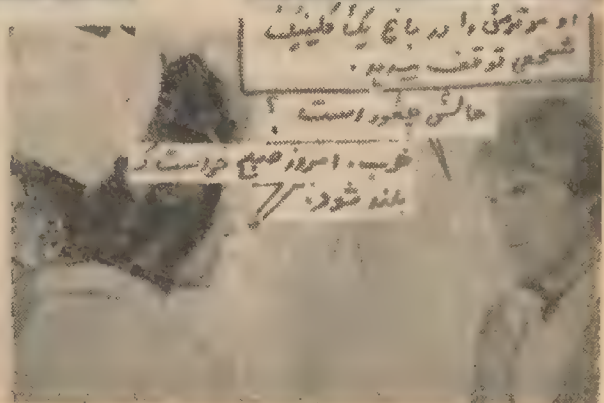 او موتورش را در باغ یک کلینیک
شخصی توقف میدهد.
حالش چطور است ؟
خوب، امروز صبح خواست که
بلند شود.